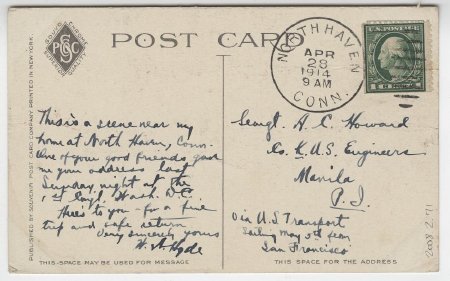 POST CARD
NORTH HAVEN
APR
28
1914
9 AM
CONN.
U.S. POSTAGE
PUBLISHED BY SOUVENIR POST CARD COMPANY, PRINTED IN NEW YORK.
This is a scene near my
home at North Haven, Conn.
One of your good friends gave
me your address last
Sunday night at the
Wash. D.C.
Here's to you - for a fine
trip and safe return
Very sincerely yours
W. A. Hyde
THIS SPACE MAY BE USED FOR MESSAGE
Sergt. A. C. Howard
Co. K. U.S. Engineers
Manila
P.I.
Via U.S. Transport
Sailing May 5th from
San Francisco
THIS SPACE IS FOR THE ADDRESS